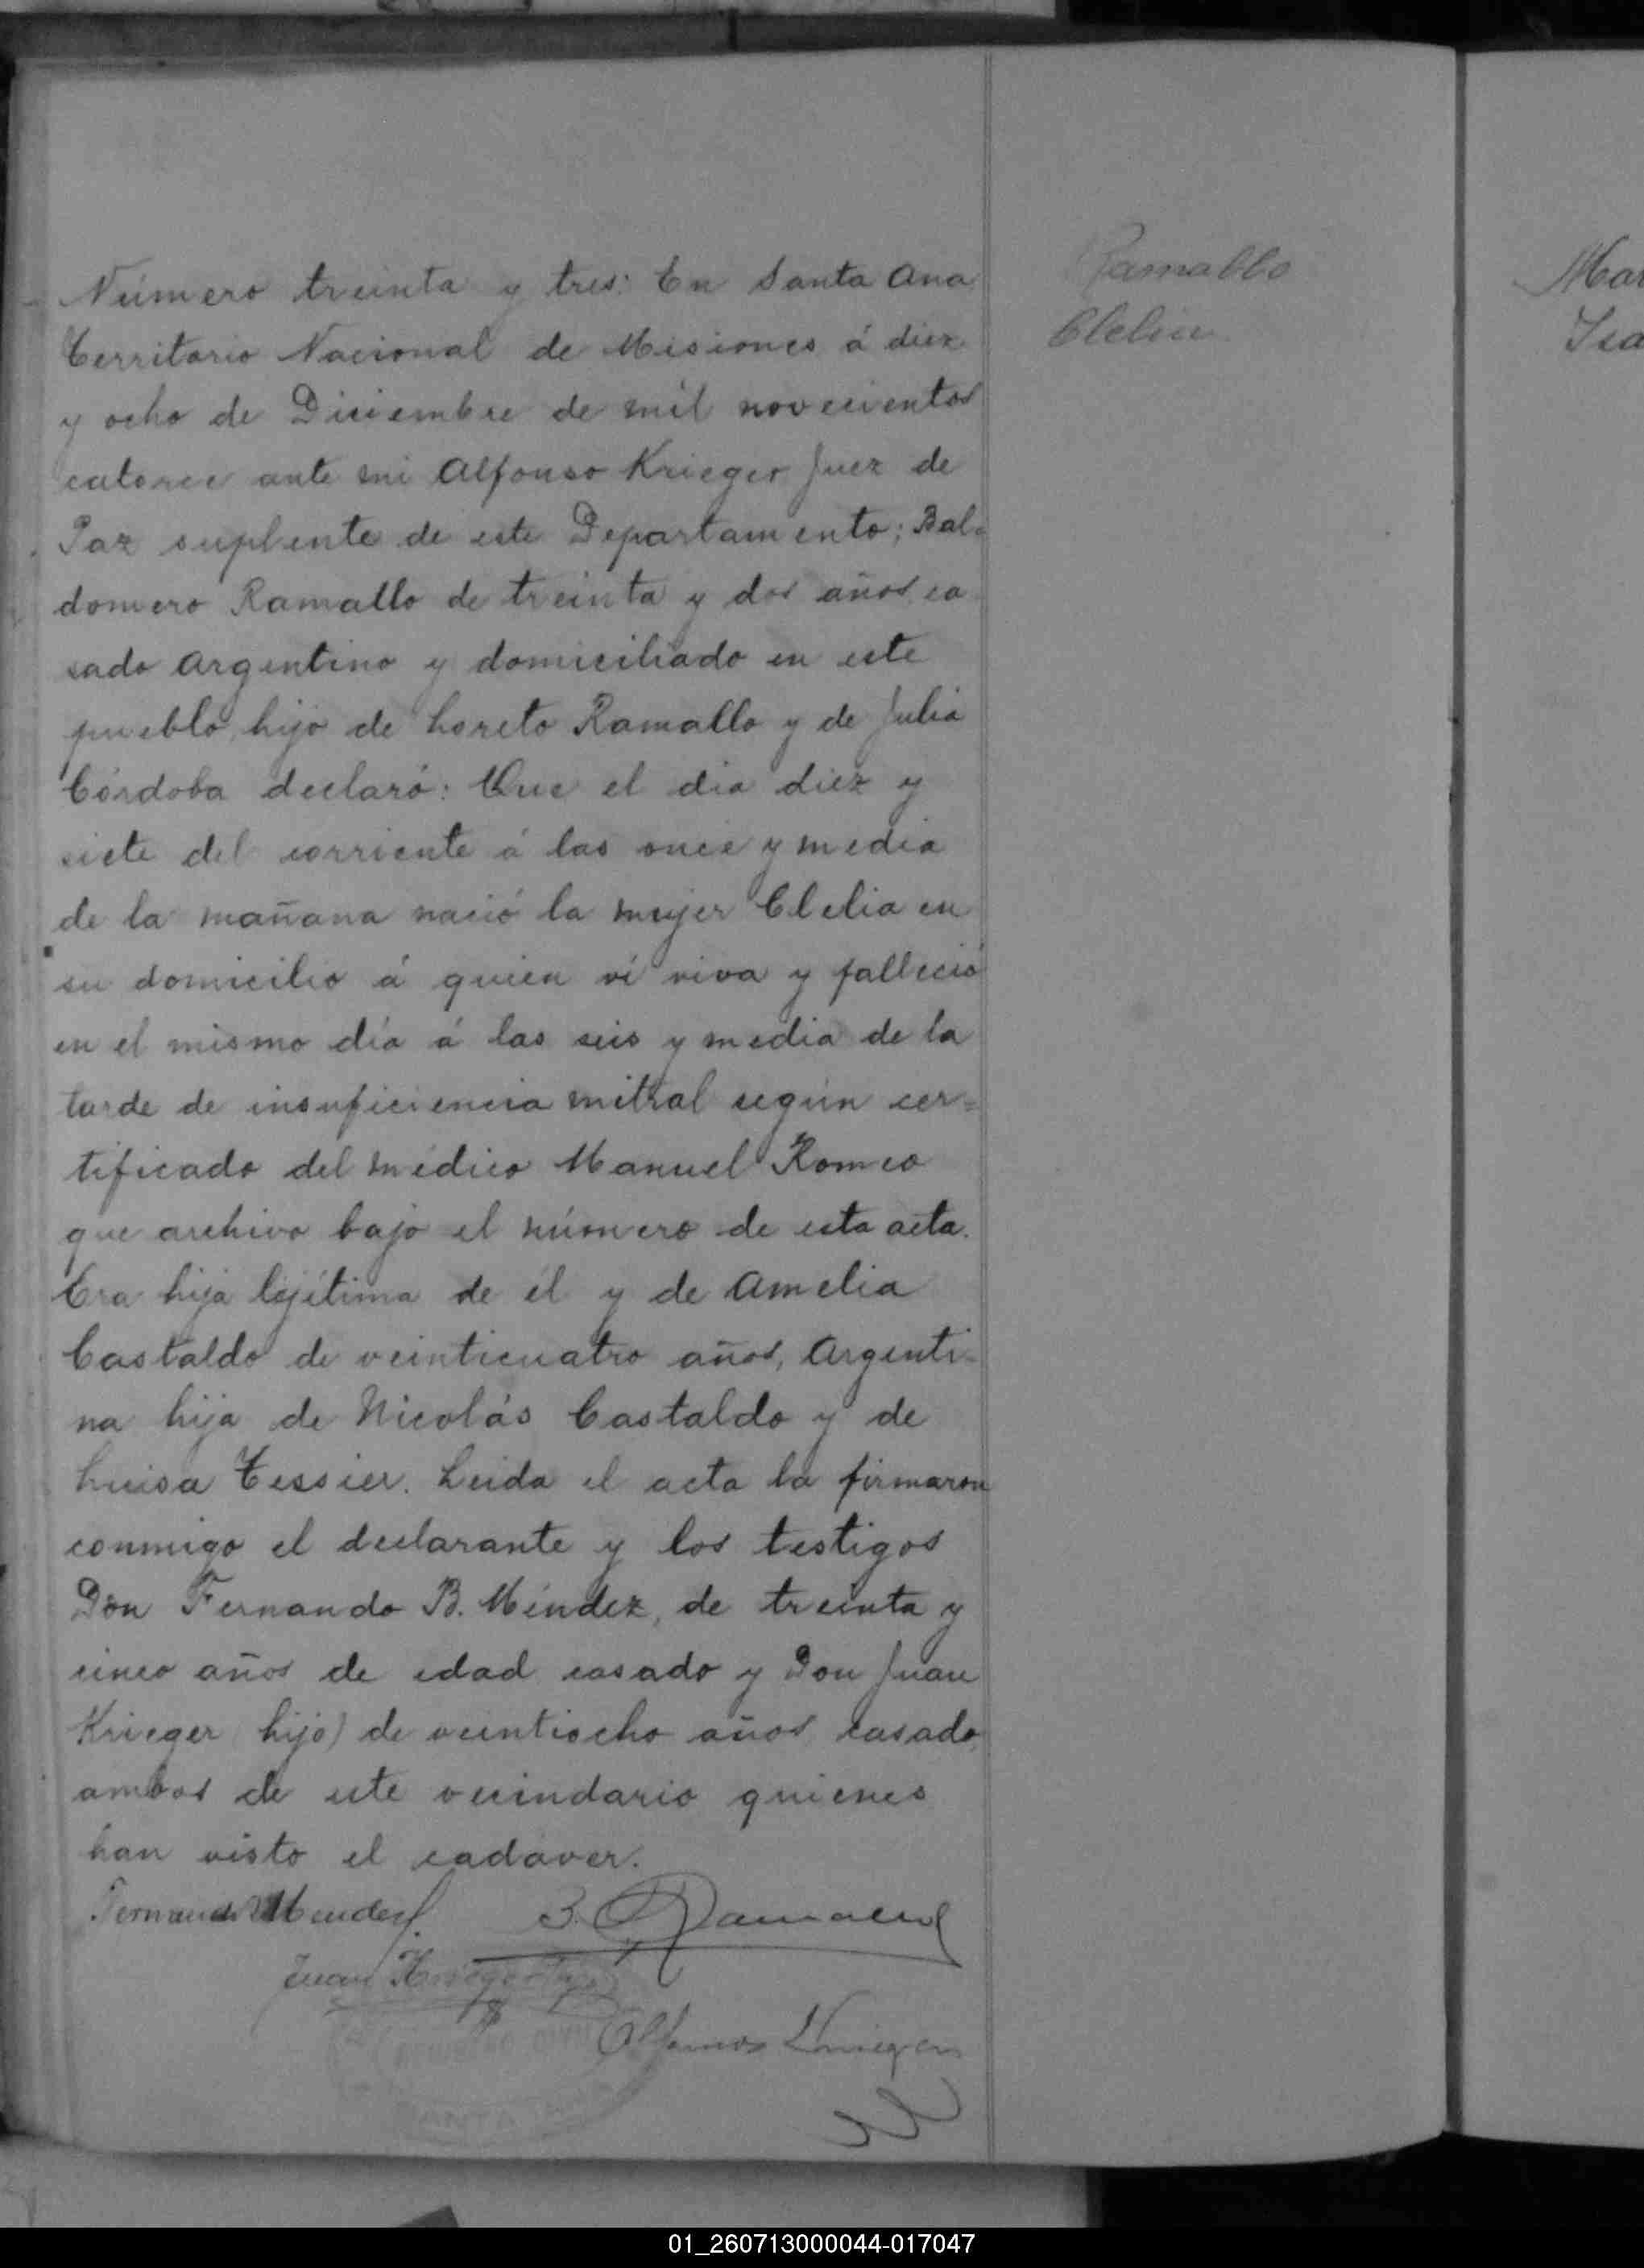 Número treinta y tres: En Santa Ana
Territorio Nacional de Misiones á diez
y ocho de Diciembre de mil novecientos
catorce ante mi Alfonso Krieger Juez de
Paz suplente de este Departamento; Bal-
domero Ramallo de treinta y dos años ca
sado Argentino y domiciliado en este
pueblo, hijo de Loreto Ramallo y de Julia
Córdoba declaró: Que el dia diez y
siete del corriente á las once y media
de la mañana nació la mujer Clelia en
su domicilio á quien vi viva y falleció
en el mismo día á las seis y media de la
tarde de insuficiencia mitral según cer=
tificado del médico Manuel Romeo
que archivo bajo el número de esta acta.
Era hija lejítima de él y de Amelia
Castaldo de veinticuatro años, Argenti-
na hija de Nicolás Castaldo y de
Luisa Tessier. Leida el acta la firmaron
conmigo el declarante y los testigos
Don Fernando B. Méndez, de treinta y
cinco años de edad casado y Don Juan
Krieger (hijo) de veintiocho años casado,
ambos de este vecindario quienes
han visto el cadaver.
Fernando Mendez B. Ramallo
Juan Krieger hijo
Alfonso Krieger
REGISTRO CIVIL
SANTA ANA
Ramallo
Clelia
Mar
Isa
01_260713000044-017047